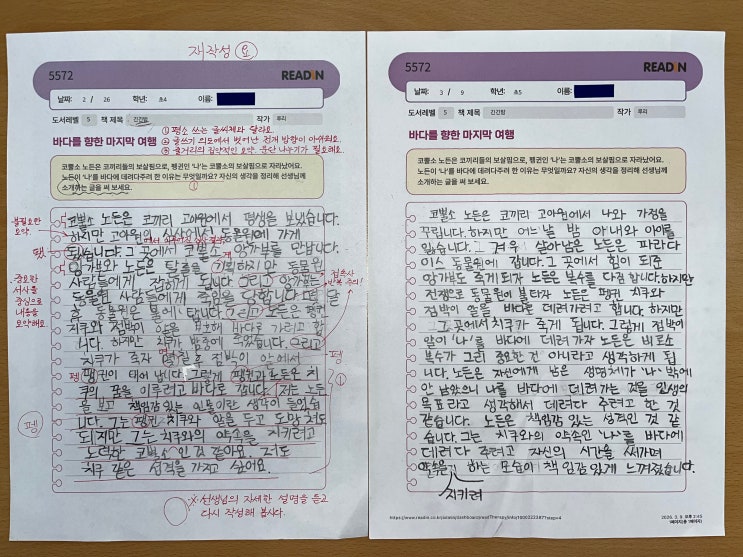 재작성 요
5572
READIN
날짜: 2 / 26 학년: 초4 이름:
도서레벨 5 책 제목 긴긴밤 작가 루리
① 평소 쓰는 글씨체와 달라요.
바다를 향한 마지막 여행
② 글쓰기 의도에서 벗어난 전개 방향이 아쉬워요.
③ 줄거리의 집약적인 요약, 문단 나누기가 필요해요.
코뿔소 노든은 코끼리들의 보살핌으로, 펭귄인 '나'는 코뿔소의 보살핌으로 자라났어요.
노든이 '나'를 바다에 데려다주려 한 이유는 무엇일까요? 자신의 생각을 정리해 선생님께
소개하는 글을 써 보세요.
①
불필요한
요약.
코뿔소 노든은 코끼리 고아원에서 평생을 보냈습니다.
하지만 고아원의 동물원에 가게
됐습니다. 그 곳에서 코뿔소 앙가부를 만납니다.
앙가부와 노든은 탈출을 기획하지만 동물원
사람들에게 잡히게 됩니다. 그리고 앙가부는
동물원 사람들에게 죽임을 당합니다.
중요한
서사를
중심으로
내용을
요약해요.
접속사
반복 주의!
후 동물원은 불에 탑니다. 그리고 노든은 펭귄
치쿠와 점박이 알을 바다로 가려고 합
니다. 하지만 치쿠가 밤중에 죽었습니다. 그리고
치쿠가 죽자 점박이 알에서
펭귄이 태어 납니다. 그렇게 펭귄과 노든은 치
쿠의 꿈을 이루려고 바다로 갑니다. 저는 노든
을 보고 책임감 있는 인물이란 생각이 들었습
니다. 그는 펭귄 치쿠와 알을 두고 도망 쳐도
되지만 그는 치쿠와의 약속을 지키려고
노력한 코뿔소 인 것 같아요. 저도
치쿠 같은 성격을 가지고 싶어요.
펭
①
펭
※ 선생님의 자세한 설명을 듣고
다시 작성해 봅시다.
5572
READIN
날짜: 3 / 9 학년: 초5 이름:
도서레벨 5 책 제목 긴긴밤 작가 루리
바다를 향한 마지막 여행
코뿔소 노든은 코끼리들의 보살핌으로, 펭귄인 '나'는 코뿔소의 보살핌으로 자라났어요.
노든이 '나'를 바다에 데려다주려 한 이유는 무엇일까요? 자신의 생각을 정리해 선생님께
소개하는 글을 써 보세요.
코뿔소 노든은 코끼리 고아원에서 나와 가정을
꾸립니다. 하지만 어느날 밤 아내와 아이를
잃습니다. 그 겨우 살아남은 노든은 파라다
이스 동물원에 갑니다. 그 곳에서 힘이 되준
앙가부도 죽게 되자 노든은 복수를 다짐 합니다. 하지만
전쟁으로 동물원이 불 타자 노든은 펭귄 치쿠와
점박이 알을 바다로 데려가려고 합니다. 하지만
그 곳에서 치쿠가 죽게 됩니다. 그렇게 점박이
알이 '나'를 바다에 데려 가자 노든은 비로소
복수가 그리 중요한 건 아니라고 생각하게 됩
니다. 노든은 자신에게 남은 생명체가 '나' 밖에
안 남았으니 나를 바다에 데려가는 것을 인생의
목표라고 생각해서 데려다 주려고 한 것
같습니다. 노든은 책임감 있는 성격인 것 같습
니다. 그는 치쿠와의 약속인 '나'를 바다에
데려다 주려고 자신의 시간을 써가며
약속을 하는 모습이 책임감 있게 느껴졌습니다.
지키려
2026. 3. 9. 오후 3:45